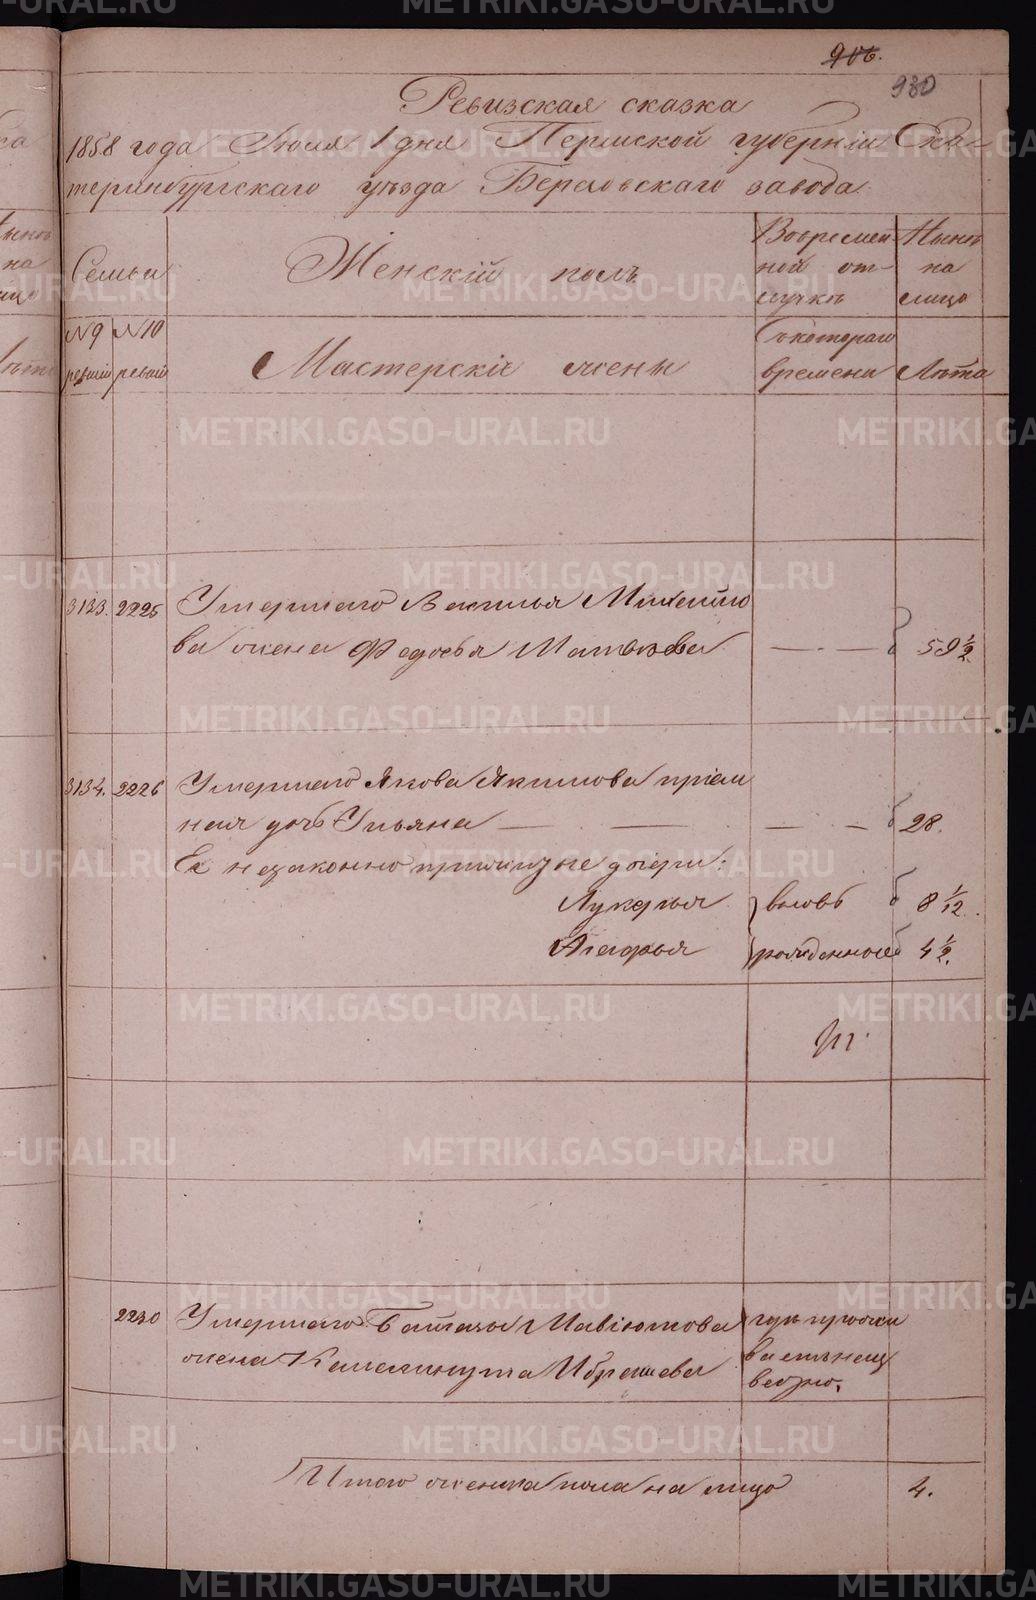 906.
930
Ревизская сказка
1858 года Июля 1 дня Пермской губерніи Ека-
теринбургскаго уѣзда Березовскаго завода
Семьи
Женскій полъ
Вовремен
ной от-
лучкѣ
Нынѣ
на
лицо
№ 9 ревизіи
№ 10 ревизіи
Мастерскіе жены
Съ котораго
времени
Лѣта
3133. 2225 Умершаго Василья Михайло
ва жена Федосья Матвѣева 59 1/2.
3134. 2226 Умершаго Якова Якимова пріем
ная дочь Ульяна 28.
Ея незаконно прижитые дочери:
Лукерья вновь 8 1/12
Агафья рожденные 4 1/2.
2230 Умершаго
жена
Итого женска пола на лицо 4.
METRIKI.GASO-URAL.RU